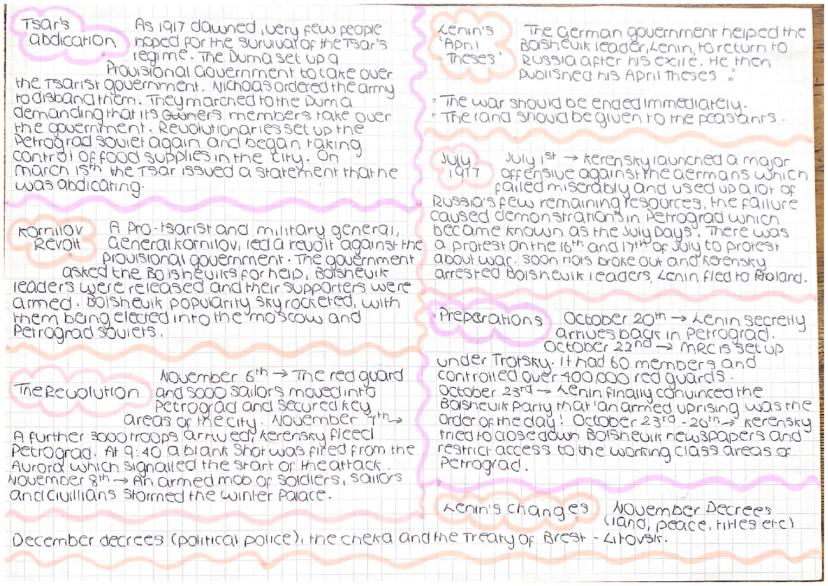 Tsar's
abdication
As 1917 dawned, very few people
hoped for the survival of the Tsar's
regime. The Duma set up a
Provisional Government to take over
the Tsarist government. Nichoas ordered the army
to disband them. They marched to the Duma
demanding that its members take over
the government. Revolutionaries set up the
Petrograd Soviet again and began taking
control of food supplies in the city. On
march 15th the Tsar issued a statement that he
was abdicating.
Kornilov
Revolt
A Pro-tsarist and military general,
General Kornilov, led a revolt against the
provisional government. The government
asked the Bolsheviks for help. Bolshevik
leaders were released and their supporters were
armed. Bolshevik popularity skyrocketed, with
them being elected into the moscow and
Petrograd soviets.
The Revolution
November 6th → The red guard
and 5000 sailors moved into
Petrograd and secured key
areas of the city. November 7th →
A further 3000 troops arrived, Kerensky fleed
Petrograd. At 9:40 a blank shot was fired from the
Aurora which signalled the start of the attack.
November 8th → An armed mob of soldiers, sailors
and civillians stormed the winter Palace.
Lenin's
'April
Theses'
The German government helped the
Bolshevik leader, Lenin, to return to
Russia after his exile. He then
published his April Theses :
· The war should be ended immediately.
· The land should be given to the peasants.
July
1917
July 1st → Kerensky launched a major
offensive against the Germans which
failed miserably and used up a lot of
Russia's few remaining resources. The failure
caused demonstrations in Petrograd which
became known as the July Days. There was
a protest on the 16th and 17th of July to protest
about war. Soon riots broke out and Kerensky
arrested Bolshevik leaders. Lenin fled to
Preparations
October 20th → Lenin secretly
arrives back in Petrograd.
October 22nd → MRC is set up
under Trotsky. It had 60 members and
controlled over 400,000 red guards.
October 23rd → Lenin finally convinced the
Bolshevik Party that 'an armed uprising was the
order of the day'! October 23rd - 26th → Kerensky
tried to close down Bolshevik newspapers and
restrict access to the working class areas of
Petrograd.
Lenin's changes
November Decrees
(land, peace, titles etc)
December decrees (political police), the cheka and the Treaty of Brest - Litovsk.